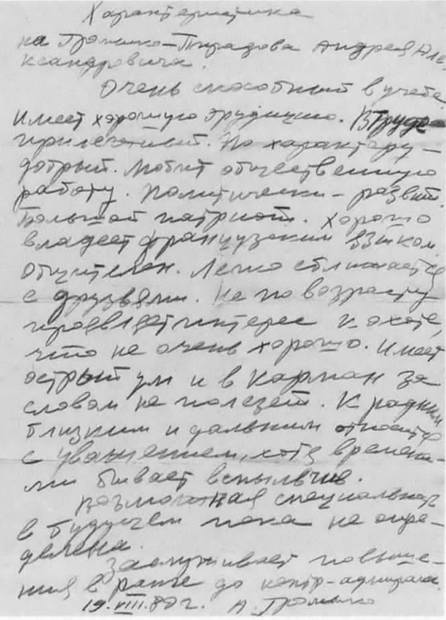 Характеристика
на Громыко-Пирадова Андрея Але
ксандровича.
Очень способный в учебе
Имеет хорошую эрудицию. В труде
прилежный. По характеру –
добрый. Любит общественную
работу. Политически – развит.
Большой патриот. Хорошо
владеет французским языком.
Общителен. Легко сближается
с друзьями. Не по возрасту
проявляет интерес к охоте,
что не очень хорошо. Имеет
острый ум и в карман за
словом не полезет. К родным
близким и дальним относится
с уважением, хотя времена-
ми бывает вспыльчив.
Возможная специальность
в будущем пока не опре-
делена.
Заслуживает повыше-
ния в ранге до контр-адмирала.
19.VIII.80г. А. Громыко